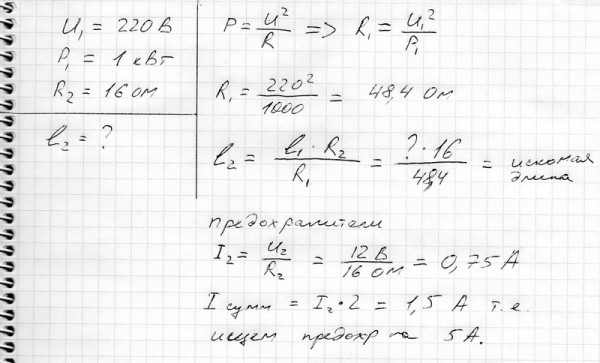 U₁ = 220 В
P₁ = 1 кВт
R₂ = 16 ом
ℓ₂ = ?
P = U²/R => R₁ = U₁²/P₁
R₁ = 220²/1000 = 48,4 Ом
ℓ₂ = ℓ₁ · R₂/R₁ = ? · 16/48,4 = искомая длина
предохранители
I₂ = U₂/R₂ = 12 В/16 Ом = 0,75 А
I сумм = I₂ · 2 = 1,5 А т.е.
ищем предохр на 5А.